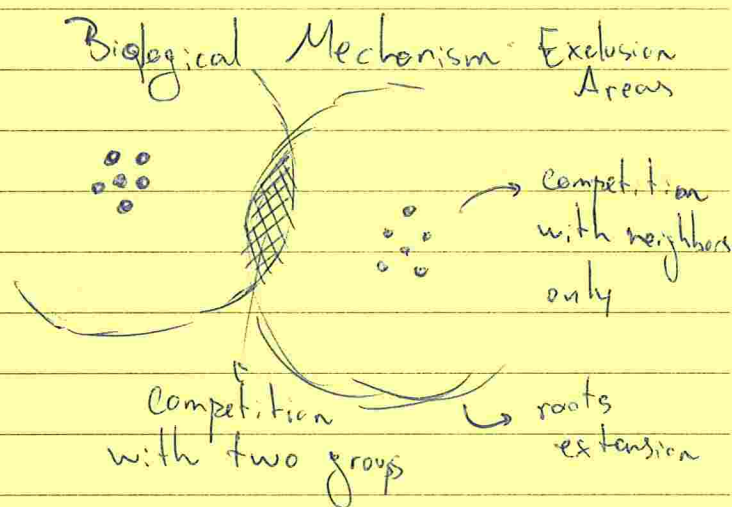 Biological Mechanism Exclusion
Areas
competition
with neighbors
only
Competition
with two groups
roots
extension